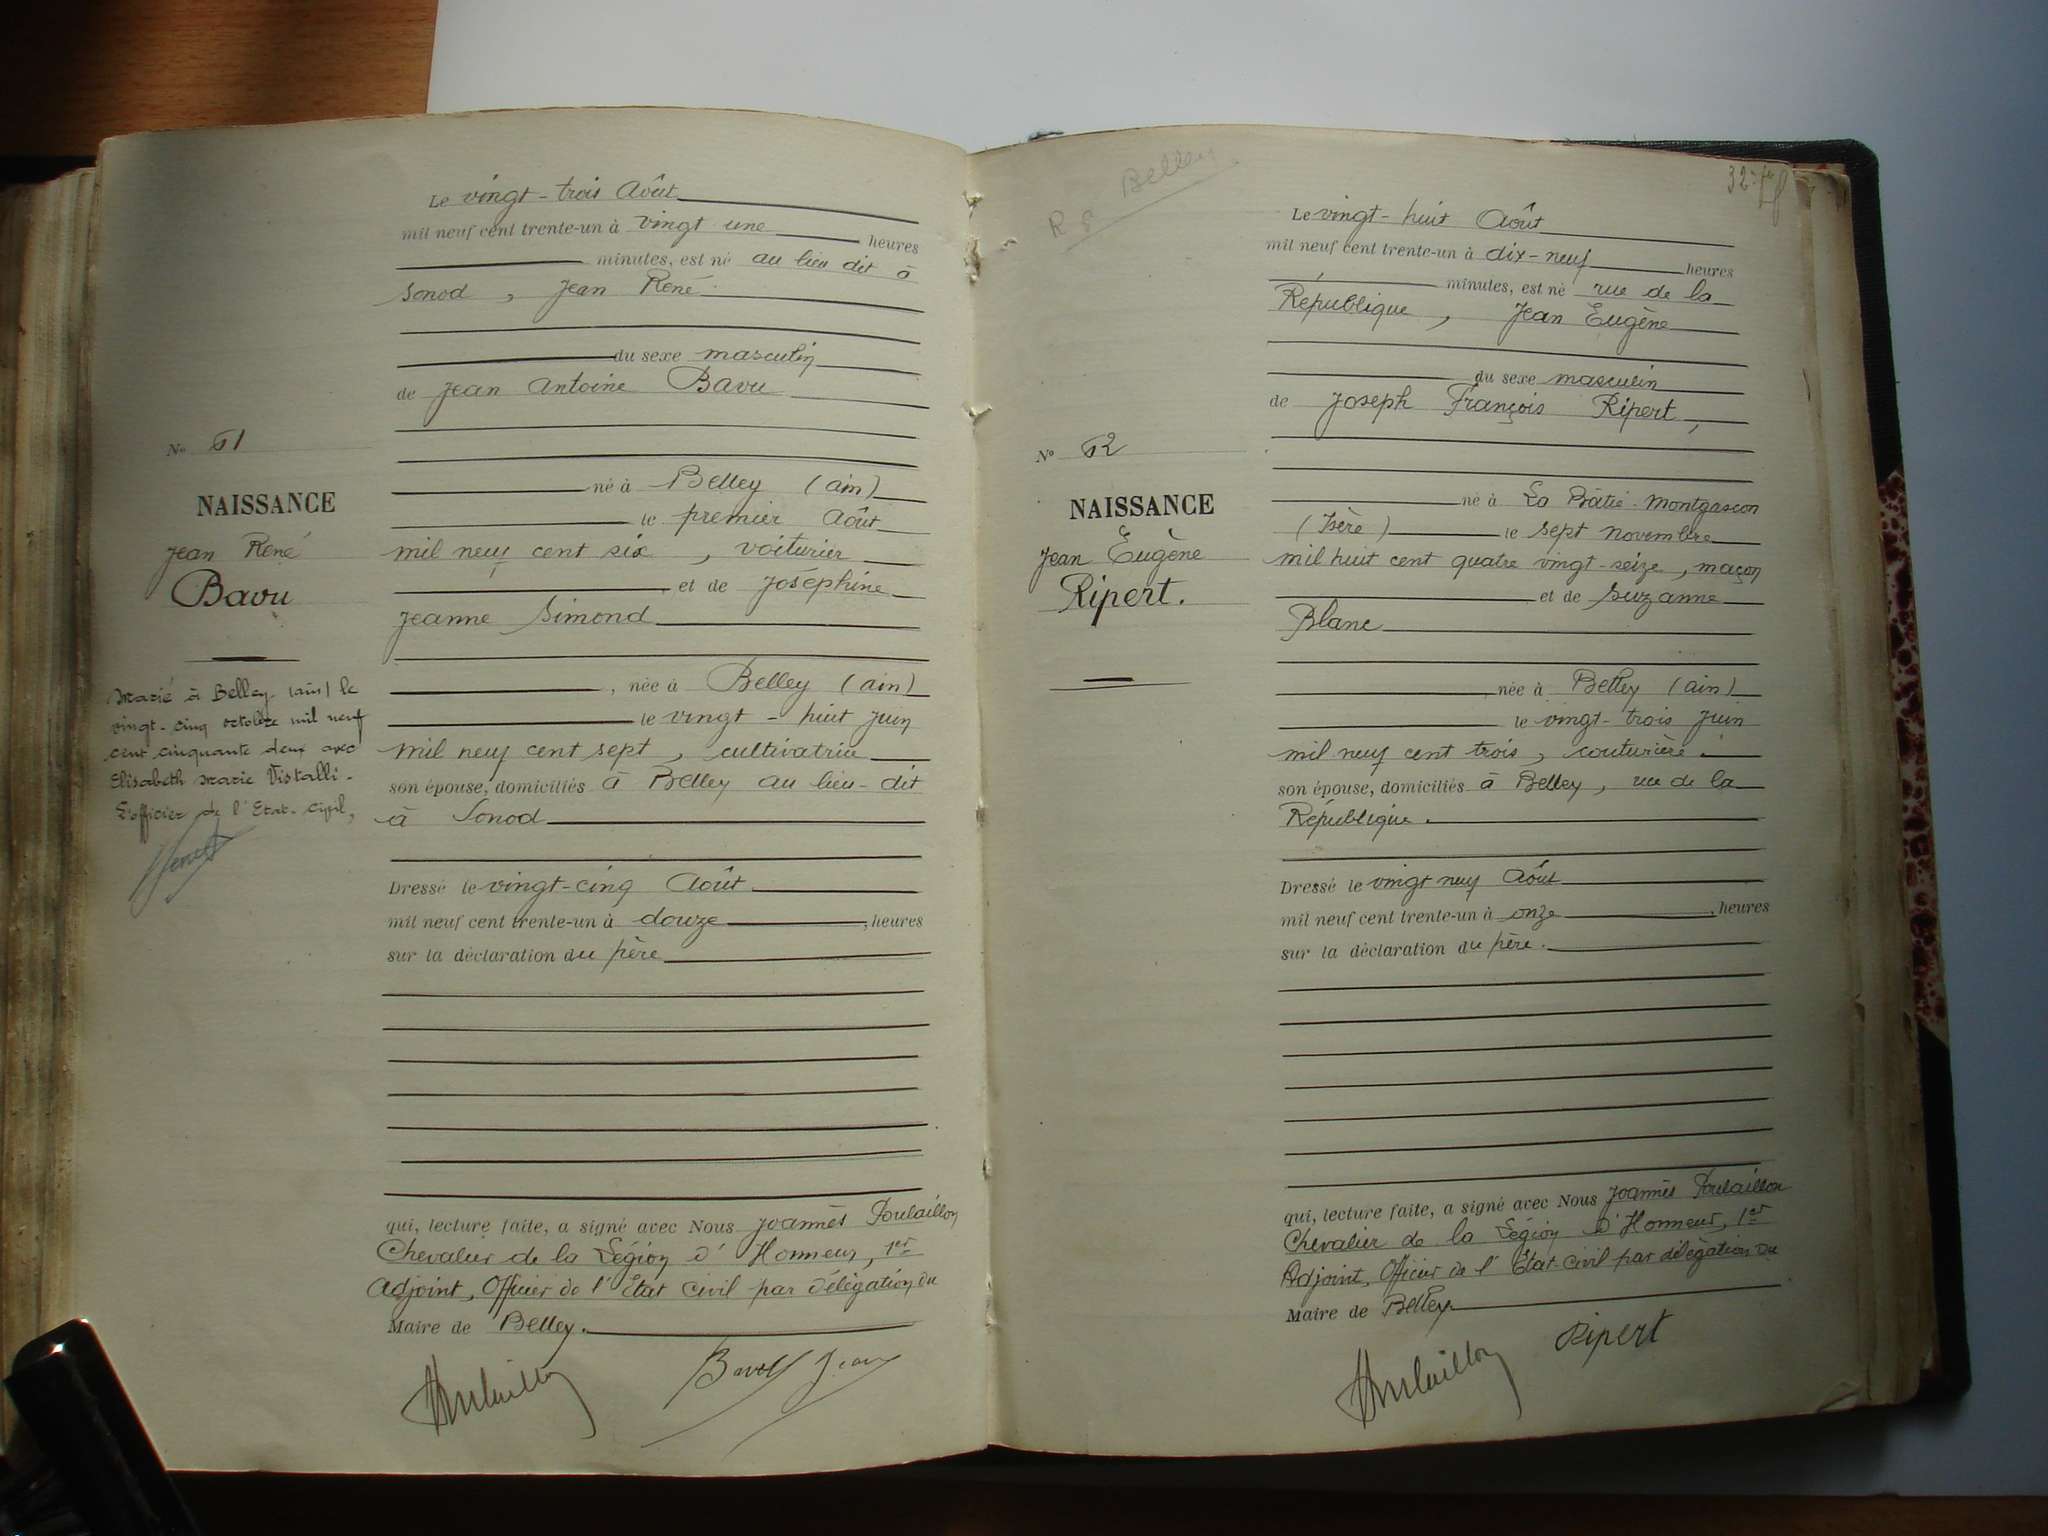 Le vingt-trois Août
mil neuf cent trente-un à vingt une heures
minutes, est né au lieu dit à
Sonod, Jean René
du sexe masculin
de Jean Antoine Bavu
né à Belley (Ain)
le premier Août
mil neuf cent six, voiturier
et de Joséphine
Jeanne Simond
, née à Belley (Ain)
le vingt-huit Juin
mil neuf cent sept, cultivatrice
son épouse, domiciliés à Belley au lieu-dit
à Sonod
Dressé le vingt-cinq Août
mil neuf cent trente-un à douze, heures
sur la déclaration du père
qui, lecture faite, a signé avec Nous Joannès Poulaillon
Chevalier de la Légion d'Honneur, 1er
Adjoint, Officier de l'Etat Civil par délégation du
Maire de Belley.
Poulaillon
N° 61
NAISSANCE
Jean René
Bavu
Marié à Belley (Ain) le
vingt-cinq octobre mil neuf
cent cinquante deux avec
Elisabeth Marie Vistalli.
L'officier de l'Etat-civil,
R g Belley
32
Le vingt-huit Août
mil neuf cent trente-un à dix-neuf heures
minutes, est né rue de la
République, Jean Eugène
du sexe masculin
de Joseph François Ripert,
né à La Bâtie-Montgascon
(Isère) le sept novembre
mil huit cent quatre vingt-seize, maçon
et de Suzanne
Blanc
, née à Belley (Ain)
le vingt-trois Juin
mil neuf cent trois, couturière.
son épouse, domiciliés à Belley, rue de la
République.
Dressé le vingt neuf Août
mil neuf cent trente-un à onze, heures
sur la déclaration du père.
qui, lecture faite, a signé avec Nous Joannès Poulaillon
Chevalier de la Légion d'Honneur, 1er
Adjoint, Officier de l'Etat-Civil par délégation du
Maire de Belley.
Poulaillon Ripert
N° 62
NAISSANCE
Jean Eugène
Ripert.